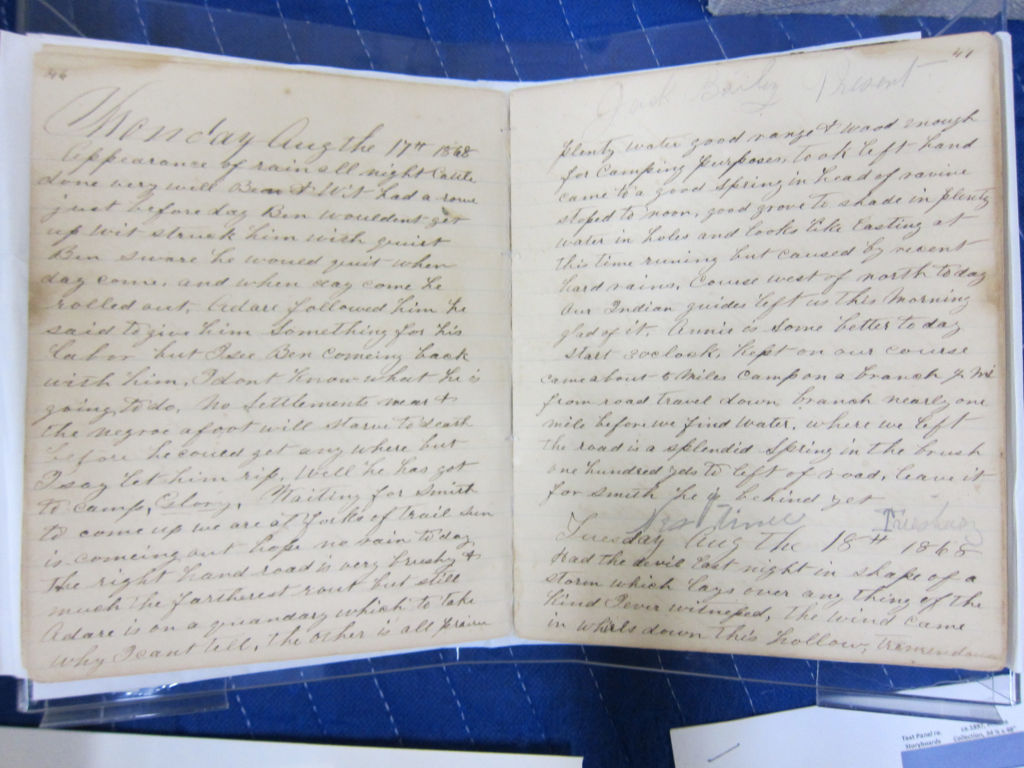 46
Monday Aug the 17th 1868
Appearance of rain all night Cattle
done very will Ben & Wit had a row
just before day Ben wouldent get
up Wit struck him with quirt
Ben sware he would quit when
day come, and when day come he
rolled out, Adare followed him he
said to give him something for his
labor but I see Ben comeing back
with him, I dont know what he is
going to do. No Settlements near &
the negroe afoot will starve to death
before he could get any where but
I say let him rip, Well he has got
to camp, Glory, Waiting for Smith
to come up we are at forks of trail sun
is comeing out hope no rain to day,
the right hand road is very brushy &
much the fartherest rout but still
Adare is on a quandary which to take
why I cant tell, the other is all prairie
41
Jack Bailey Present
plenty water good range & wood enough
for camping purposes, took left hand
came to a good spring in head of ravine
stoped to noon, good grove to shade in plenty
water in holes and looks like lasting at
this time runing but caused by recent
hard rains, Course west of north to day
Our Indian guides left us this Morning
glad of it. Annie is some better to day
Start 3 oclock, kept on our course
came about 6 Miles Camp on a branch ½ Mi
from road travel down branch nearly one
mile before we find water, where we left
the road is a splendid spring in the brush
one hundred yds to left of road, leave it
for Smith he is behind yet
Tuesday
Tuesday Aug the 18th 1868
Had the devil last night in shape of a
storm which lays over any thing of the
kind I ever witnessed, the wind came
in whirls down this hollow, tremendous
Text Panel re.
Storyboards
ca 1897,
Collection, 34 ½ x 46"